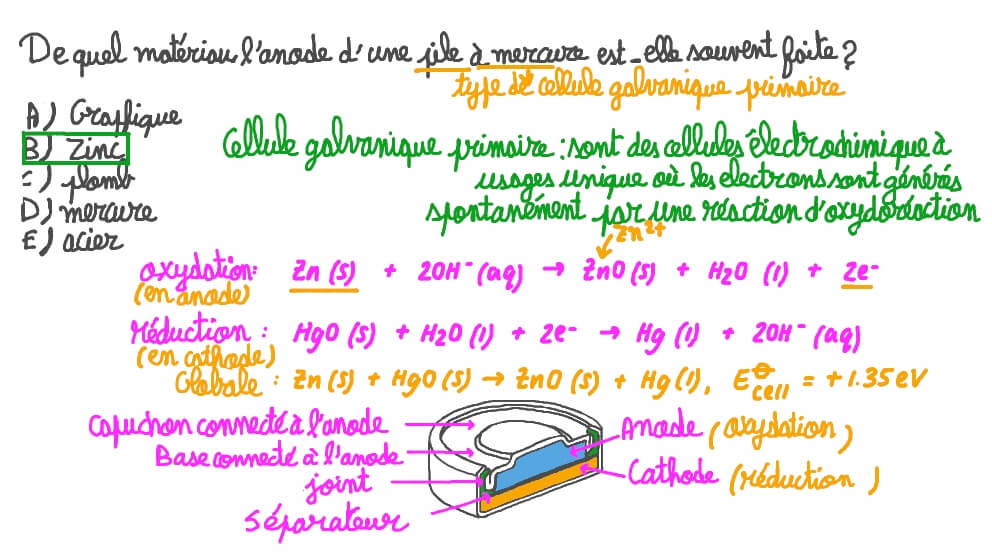 De quel matériau l'anode d'une pile à mercure est-elle souvent faite?
type de cellule galvanique primaire
A) Graffique
B) Zinc
C) plomb
D) mercure
E) acier
Cellule galvanique primaire : sont des cellules électrochimique à
usages unique où les electrons sont générés
spontanément par une réaction d'oxydoréaction
Zn²⁺
oxydation: Zn (s) + 2OH⁻ (aq) → ZnO (s) + H₂O (l) + 2e⁻
(en anode)
réduction : HgO (s) + H₂O (l) + 2e⁻ → Hg (l) + 2OH⁻ (aq)
(en cathode)
Globale : Zn (s) + HgO (s) → ZnO (s) + Hg (l), E⦵cell = +1.35 eV
Capuchon connecté à l'anode
Anode (oxydation)
Base connecté à l'anode
Cathode (réduction)
joint
séparateur